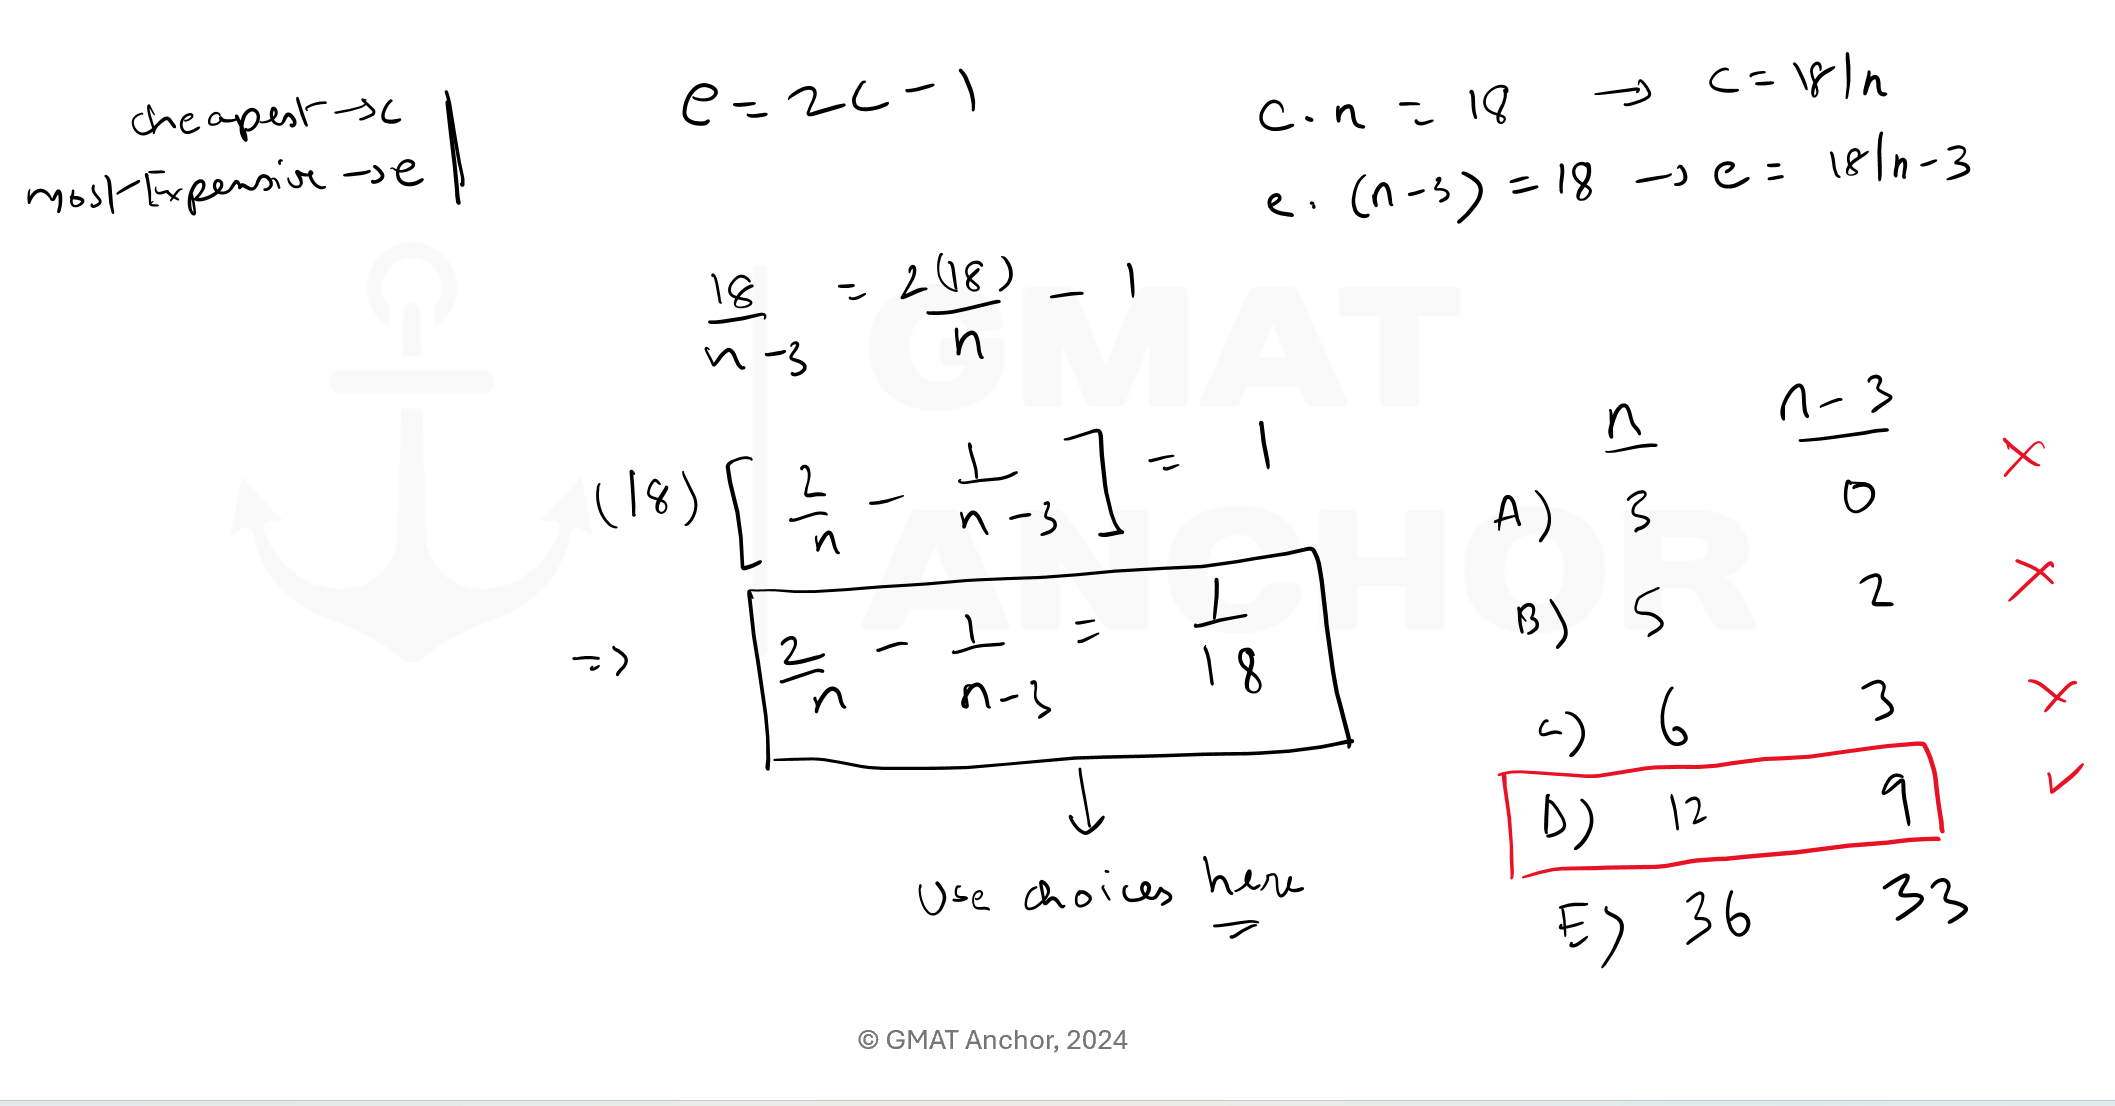 cheapest → c
most Expensive → e
e = 2c - 1
c . n = 18 → c = 18/n
e . (n-3) = 18 → e = 18/n-3
18/n-3 = 2(18)/n - 1
(18) [2/n - 1/n-3] = 1
=> 2/n - 1/n-3 = 1/18
Use choices here
n n-3
A) 3 0 ✗
B) 5 2 ✗
C) 6 3 ✗
D) 12 9 ✓
E) 36 33
GMAT
ANCHOR
© GMAT Anchor, 2024